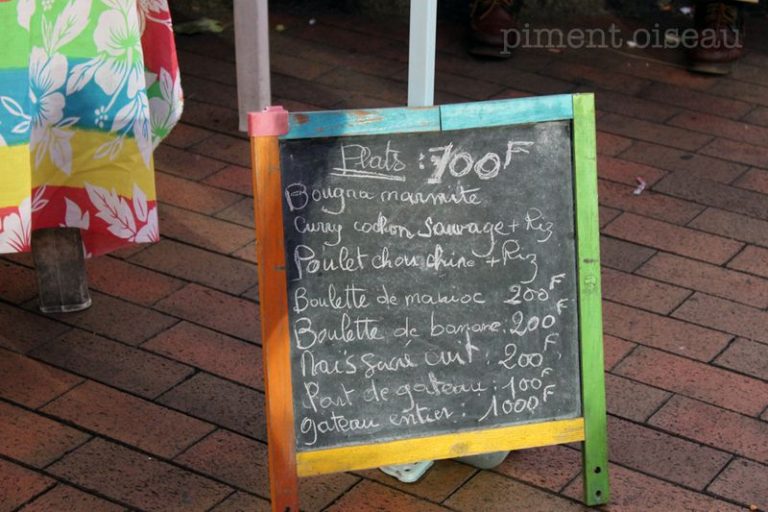 piment oiseau
Plats : 700F
Bougna marmite
Curry cochon sauvage + Riz
Poulet chou chine + Riz
Boulette de manioc 200F
Boulette de banane : 200F
Maïs sacré cuit : 200F
Part de gateau : 100F
gateau entier : 1000F